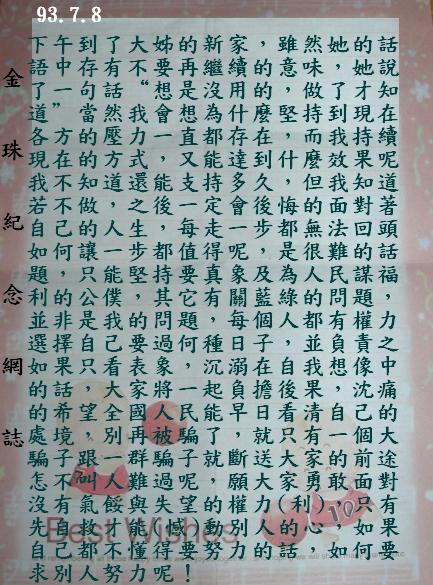 93.7.8
金珠紀念網誌
下午到了大姊的新家,雖然她的話
語中存有不要再繼續的意味,她說
了一句話“想是沒用的,做了才知
道”當然我會想為什麼堅持到現在
各方的壓力一直都存在,而我持續
現在的方式,又能達到什麼效果呢
我不知道還能支持多久,但我知道
若不做,之後一定會後悔的面對著
自己的人生,每走一步都無法回頭
如何讓一步都值得呢,是很難的話
題,只能堅持要真象及為人民謀福
利的公僕,其它有關藍綠的問題,
並非是我的問題,每個人都有權力
選擇自己要過何種日子,並自負責之
如果只看表象,沉溺在自我想像中
的話,大家將一起負擔後果,沈痛
的希望全國人民能早日看清自己的
處境,別再被騙了,就只有一個大
騙子跟一群騙子就斷送大家的前途
怎不叫人難過呢,願大家勇敢面對
沒有氣餒與失望的權力(利),只有
先自救才情(憾)動別人的心,如果
自己都不懂得努力的話,如何要
求別人努力呢!
Best Wishes